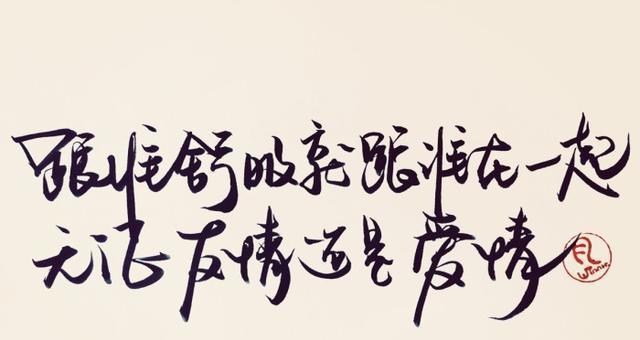 跟谁舒服就跟谁在一起
无论友情还是爱情
风
Winnie